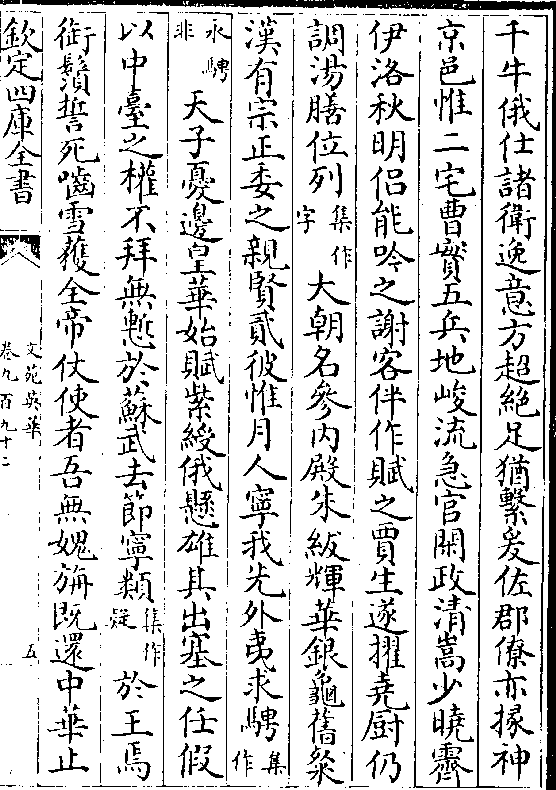 千牛俄仕諸衛逸意方超絶足猶繫爰佐郡僚亦掾神
京邑惟二宅曹實五兵地峻流急官閑政清嵩少曉霽
伊洛秋明侣能吟之謝客伴作賦之賈生遂擢堯厨仍
調湯膳位列集作字大朝名參内殿朱紱輝華銀龜舊粲
漢有宗正委之親賢貳彼惟月人寧我先外夷求騁集作
永騁非天子憂邊皇華始賦紫綬俄懸雄其出塞之任假
以中臺之權不拜無慙於蘇武去節寧類集作疑於王焉
銜鬚誓死嚙雪獲全帝仗使者吾無媿旃既還中華止
欽定四庫全書
文苑英華
卷九百九十二
五